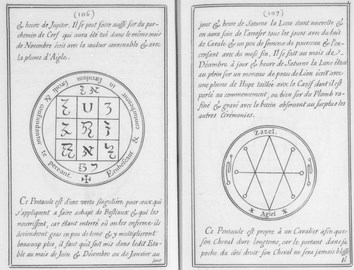 (106)
& heure de Jupiter. Il se peut faire aussi sur du par-
chemin de Cerf qui aura été tué dans le même mois
de Novembre écrit avec la audeur convenable & avec
la plume d'Aigle.
in fœtidam feodi & reundantur te pereant. Exeugiant & convalescent
Ce Pentacule est d'une vertu singuliere pour ceux qui
s'appliquent a faire achapt de Bestiaux & qui les
nourrissent, car étant enterré où autre enfermé ils
deviendront gras en peu de tems & y multiplieront
beaucoup plus, il faut qu'il soit mis dans ledit Esta-
ble au mois de Juin & Décembre ou de Janvier au
jour
(107)
jour & heure de Saturne la Lune étant nouvelle &
on aura soin de l'arroser tous les jours avec du lait
de Cavale & un peu de semence de pourceau & l'en-
censant avec du musc fin. Il se fait au mois de
Décembre à jour & heure de Saturne la Lune étant
au plein sur un morceau de peau de Lion écrit avec
une plume de Hupe taillée avec le Canif dont il est
parlé au commencement, ou bien sur du Plomb ra-
finé & gravé avec le burin observant au surplus les
autres Cérémonies.
Zazel.
Agiel
Ce Pentacule est propre à un Cavalier afin que
son Cheval dure longtems, car le portant dans sa
poche du côté droit son Cheval ne sera jamais blessé